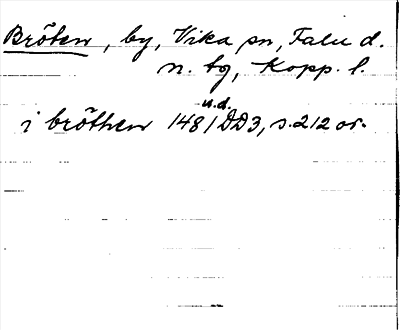 Bröten, by, Vika sn, Falu d.
n. tg, Kopp. l.
u.d.
i bröthen 1481 DD3, s. 212 or.